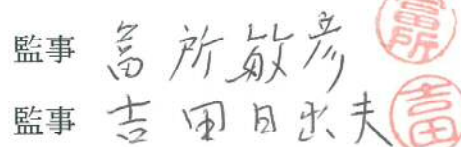 監事 富所敏彦 富所
監事 吉田日出夫 吉田